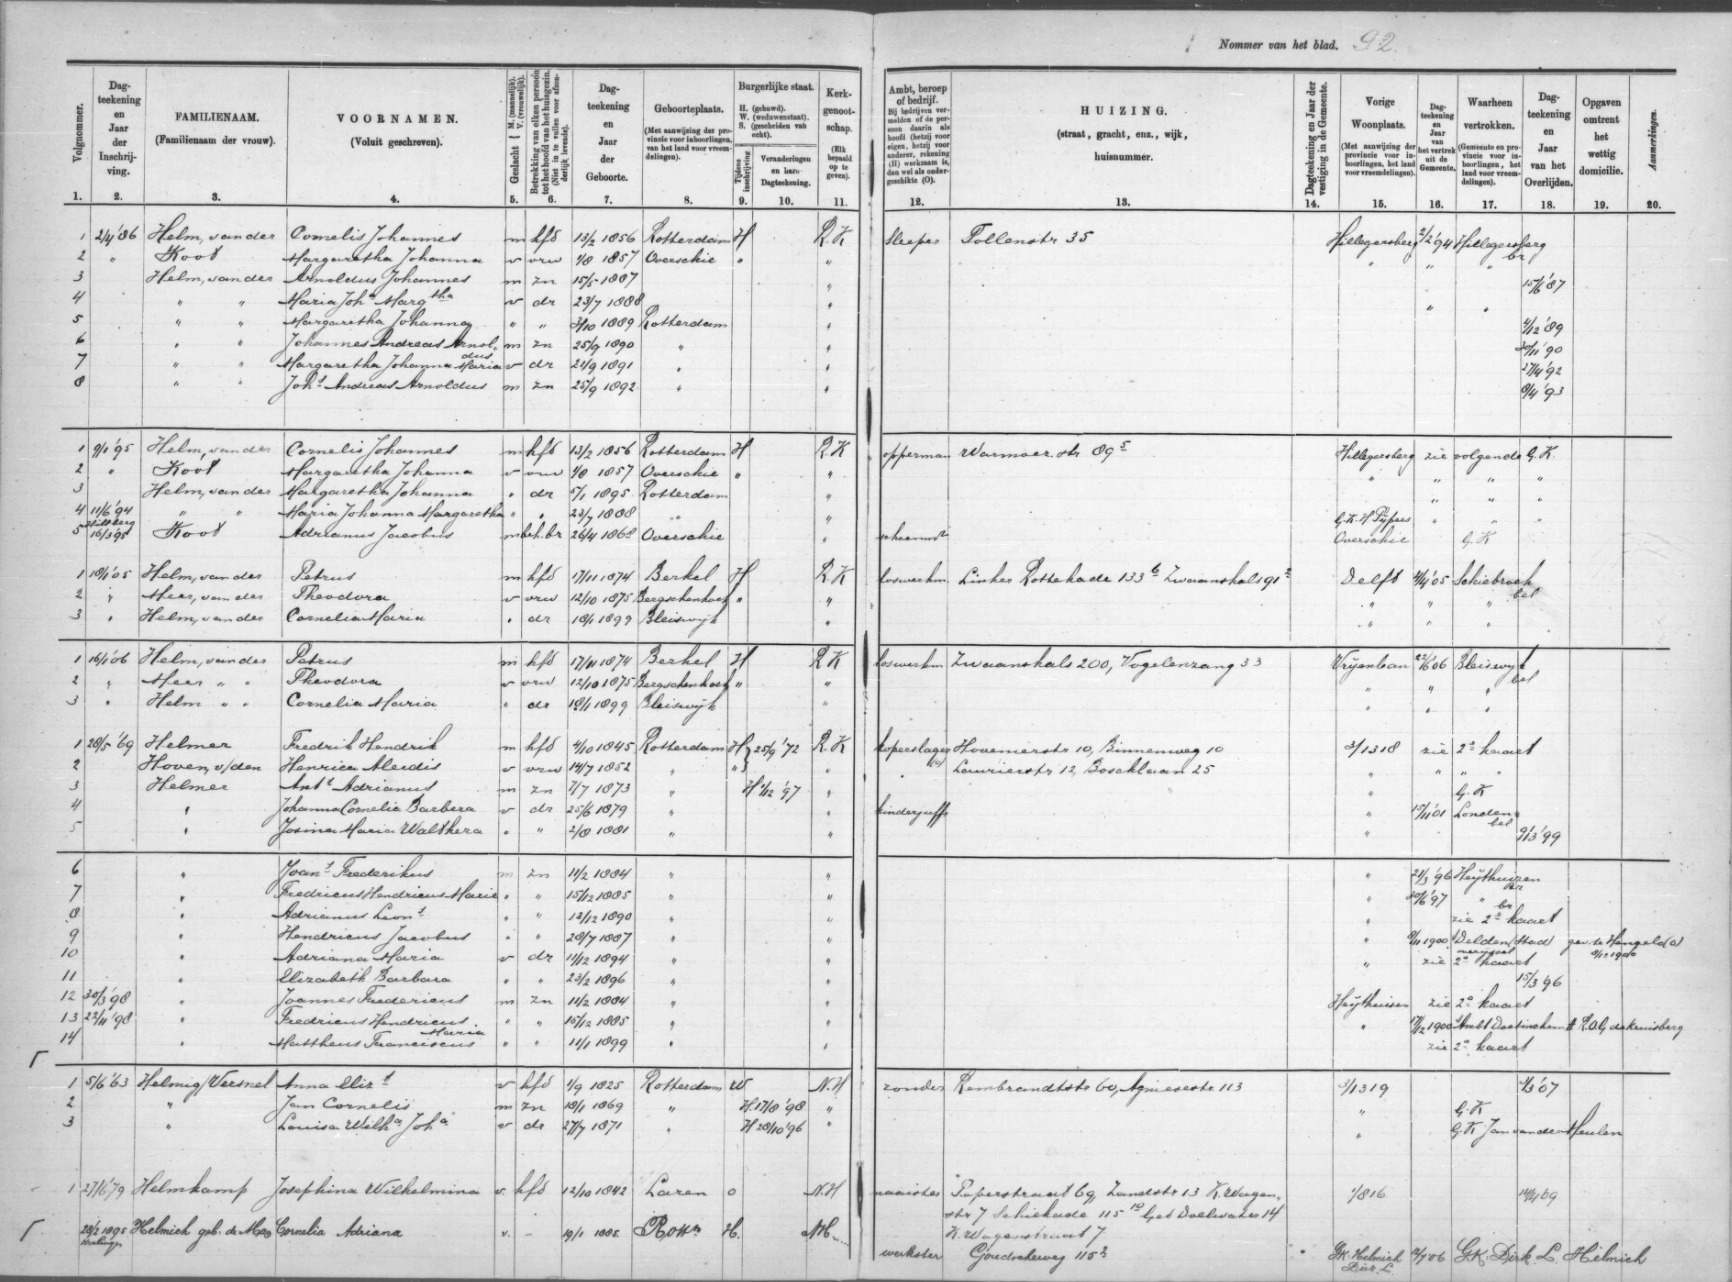 Nommer van het blad. 92.
Volgnommer.
Dag-teekening en Jaar der Inschrijving.
FAMILIENAAM.
(Familienaam der vrouw).
VOORNAMEN.
(Voluit geschreven).
Geslacht { M. (mannelijk). V. (vrouwelijk).
Betrekking van elken persoon tot het hoofd van het huisgezin.
Dag-teekening en Jaar der Geboorte.
Geboorteplaats.
(Met aanwijzing der provincie voor inboorlingen, van het land voor vreemdelingen).
Burgerlijke staat.
H. (gehuwd).
W. (weduwenstaat).
S. (gescheiden van echt).
Tijdens inschrijving
Veranderingen en hare Dagteekening.
Kerk-genoot-schap.
(Elk bepaald op te geven).
Ambt, beroep of bedrijf.
Bij bedrijven vermelden of de persoon daarin als hoofd (hetzij voor eigen, hetzij voor anderer, rekening (H) werkzaam is, dan wel als ondergeschikte (O).
HUIZING.
(straat, gracht, enz., wijk, huisnummer.
Dagteekening en Jaar der vestiging in de Gemeente.
Vorige Woonplaats.
(Met aanwijzing der provincie voor inboorlingen, het land voor vreemdelingen).
Dag-teekening en Jaar van het vertrek uit de Gemeente.
Waarheen vertrokken.
(Gemeente en provincie voor inboorlingen, het land voor vreemdelingen).
Dag-teekening en Jaar van het Overlijden.
Opgaven omtrent het wettig domicilie.
Aanmerkingen.
1. 2. 3. 4. 5. 6. 7. 8. 9. 10. 11. 12. 13. 14. 15. 16. 17. 18. 19. 20.
1 2/4 '86 Helm, van der Cornelis Johannes m hfd 13/2 1856 Rotterdam H R K sleeper Tollenstr 35 Hillegersberg 2/2 '94 Hillegersberg
2 " Koot Margaretha Johanna v vrw 4/8 1857 Overschie " " " " " br
3 Helm, van der Arnoldus Johannes m zn 15/5 1887 " 15/6 '87
4 " " Maria Joha Margtha v dr 23/7 1888 " " "
5 " " Margaretha Johanna " " 3/10 1889 Rotterdam " 2/12 '89
6 " " Johannes Andreas Arnoldus m zn 25/9 1890 " " 20/11 '90
7 " " Margaretha Johanna Maria v dr 22/9 1891 " " 27/4 '92
8 " " Johs Andreas Arnoldus m zn 25/9 1892 " " 8/4 '93
1 9/1 '95 Helm, van der Cornelis Johannes m hfd 13/2 1856 Rotterdam H R K opperman Warmoez. str 89 5 Hillegersberg zie volgende G. K.
2 " Koot Margaretha Johanna v vrw 4/8 1857 Overschie " " " " " "
3 Helm, van der Margaretha Johanna " dr 5/1 1895 Rotterdam " " "
4 11/6 '94 " " Maria Johanna Margaretha " " 23/7 1888 " " G. K. H Pijpers " " "
5 16/3 '95 Koot Adrianus Jacobus m beh. br 26/4 1868 Overschie " Overschie G. K
1 18/1 '05 Helm, van der Petrus m hfd 17/11 1874 Berkel H R K loswerkm Linker Rottekade 133 b Zwaanshals 91 2 Delft 4/4 '05 Schiebroek
2 " Meer, van der Theodora v vrw 12/10 1875 Bergschenhoek " " " " " bel
3 " Helm, van der Cornelia Maria " dr 18/1 1899 Bleiswijk " " " "
1 16/1 '06 Helm, van der Petrus m hfd 17/11 1874 Berkel H R K loswerkm Zwaanshals 200, Vogelenzang 33 Vrijenban 22/6 '06 Bleiswijk
2 " Meer " " Theodora v vrw 12/10 1875 Bergschenhoek " " " " " bel
3 " Helm " " Cornelia Maria " dr 18/1 1899 Bleiswijk " " " "
1 28/5 '69 Helmer Fredrik Hendrik m hfd 4/10 1845 Rotterdam H 25/9 '72 R K koperslager Hovenierstr 10, Binnenweg 10 3/1318 zie 2e kaart
2 Hoven, v/den Henrica Aleidis v vrw 14/7 1852 " " " (o) Laurierstr 12, Boschlaan 25 " " " "
3 Helmer Ants Adrianus m zn 7/7 1873 " H 1/12 '97 " " G. K
4 " Johanna Cornelia Barbera v dr 25/6 1879 " " kinderjuffr " 15/11 '01 Londen bel
5 " Josina Maria Walthera " " 2/8 1881 " " " 9/3 '99
6 " Joans Frederikus m zn 11/2 1884 " " " 21/3 '96 Heythuizen
7 " Fredricus Hendricus Marie " " 15/12 1885 " " " 30/6 '97 " br
8 " Adrianus Leons " " 12/12 1890 " " " zie 2e kaart
9 " Hendricus Jacobus " " 28/7 1887 " " " 8/11 1900 Delden (Stad) gev. te Hengelo (O)
10 " Adriana Maria v dr 11/12 1894 " " " zie 2e kaart
11 " Elizabeth Barbara " " 23/2 1896 " " 15/3 '96
12 30/3 '98 " Joannes Fredericus m zn 11/2 1884 " " Heythuisen zie 2e kaart
13 22/11 '98 " Fredricus Hendricus Maria " " 15/12 1885 " " " 17/12 1900 Ambt Doetinchem R. O. G. de Kruisberg
14 " Mattheus Franciscus " " 11/1 1899 " " zie 2e kaart
1 5/6 '63 Helmig/Versnel Anna Elizt v hfd 4/9 1825 Rotterdam W N. H zonder Rembrandtstr 60, Agniesestr 113 3/1319 1/3 '07
2 " Jan Cornelis m zn 18/1 1869 " H 17/8 '98 " " G. K
3 " Louisa Wilha Joha v dr 27/7 1871 " H 28/10 '96 " " G. K Jan van der Meulen
1 27/6 '79 Helmkamp Josephina Wilhelmina v. hfd 12/10 1842 Laren o N. H naaister Peperstraat 69, Zandstr 13 K. Wagen.
str 7 Schiekade 115 10 Get Doelwater 14
K. Wagenstraat 7
1/816
28/2 1895 Helmich geb. de Mos Cornelia Adriana v. - 19/1 1885 Rottm H. NH. werkster Goudscheweg 115 2 " GK. Helmich Dirk L. GK. Dirk L. Helmich